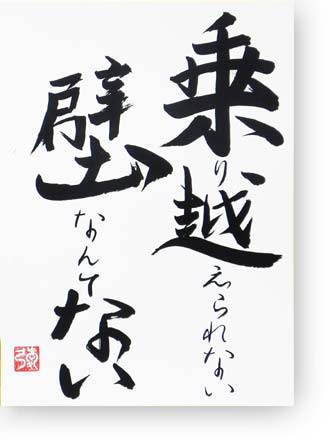 乗り越えられない
壁なんてない